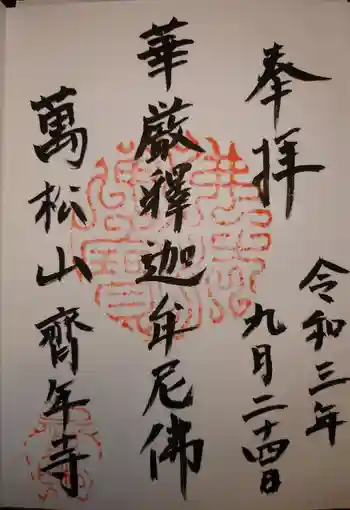 奉拝
令和三年
九月二十四日
華厳釋迦牟尼佛
萬松山齊年寺